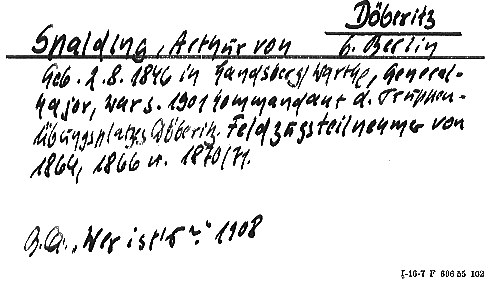 Döberitz
Spalding, Arthur von b. Berlin
Geb. 2.8.1846 in Landsberg/Warthe, General-
Major, war s. 1901 Kommandant d. Truppen-
übungsplatzes Döberitz. Feldzugsteilnehmer von
1864, 1866 u. 1870/71.
"Wer ist's?" 1908
I-16-7 F 606 55 102